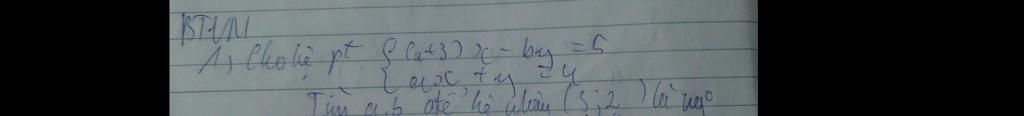 BTVN
1, Cho hệ pt { (a+3)x - by = 5
{ ax + y = 4
Tìm a, b để hệ nhận (3; 2) là ngo